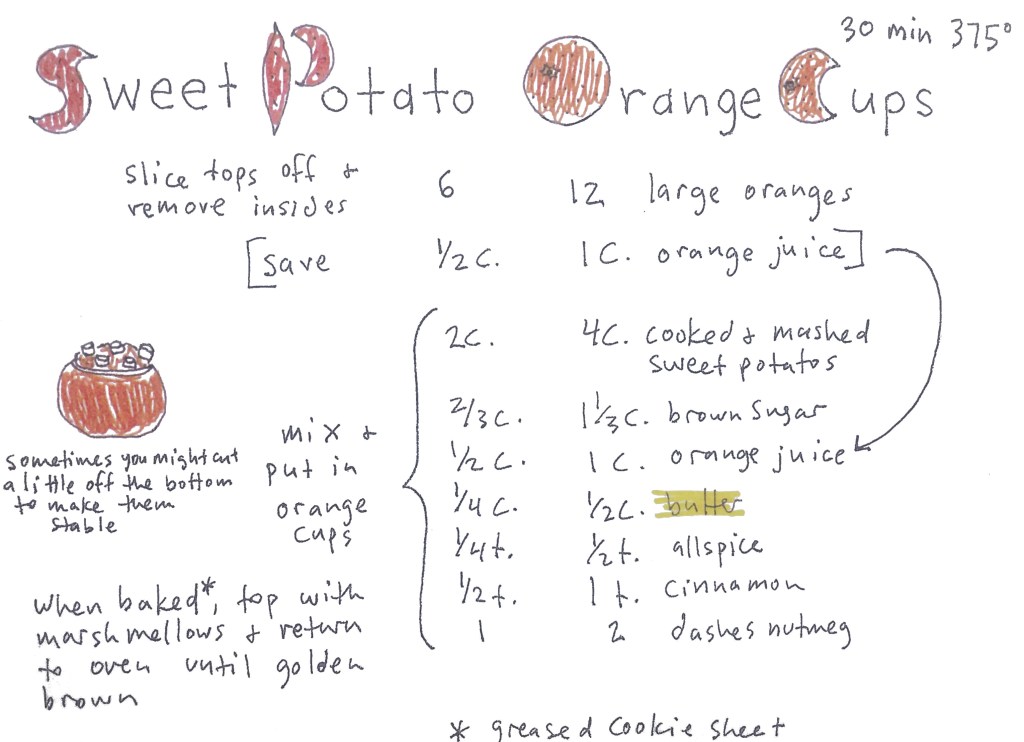 Sweet Potato Orange Cups
30 min 375°
slice tops off & remove insides 6 12 large oranges
[save 1/2 c. 1 C. orange juice]
2c. 4c. cooked & mashed
sweet potatos
2/3 c. 1 1/3 c. brown sugar
1/2 c. 1 c. orange juice
1/4 c. 1/2 c. butter
1/4 t. 1/2 t. allspice
1/2 t. 1 t. cinnamon
1 2 dashes nutmeg
mix &
put in
orange
cups
sometimes you might cut
a little off the bottom
to make them
stable
when baked*, top with
marshmellows & return
to oven until golden
brown
* greased cookie sheet